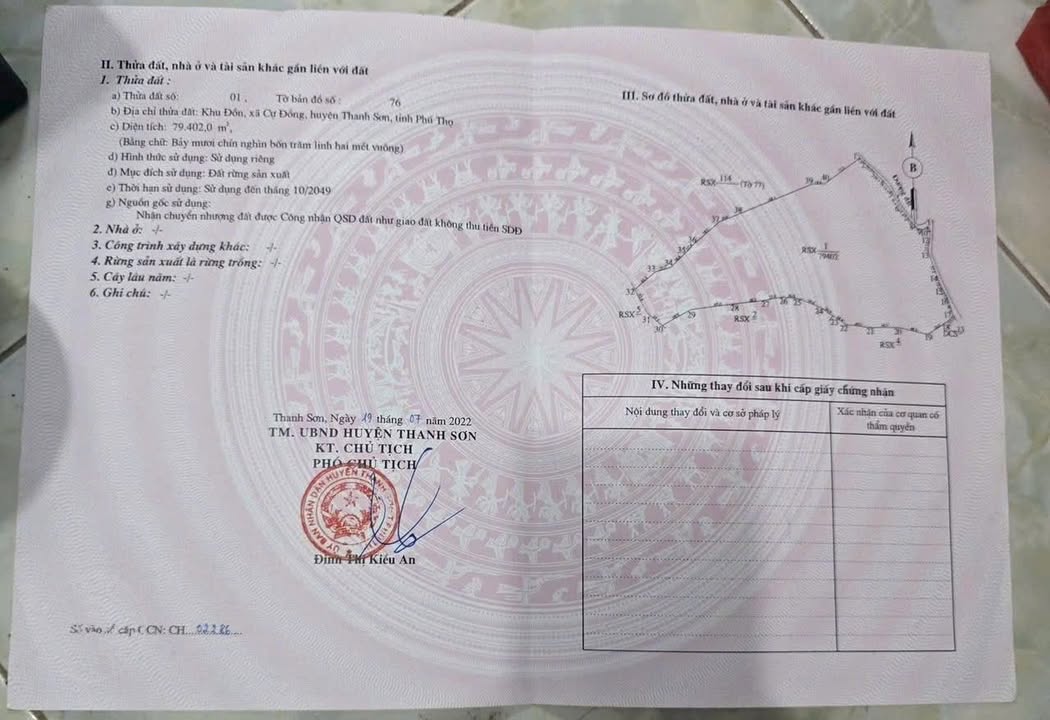 II. Thửa đất, nhà ở và tài sản khác gắn liền với đất
1. Thửa đất :
a) Thửa đất số: 01 . Tờ bản đồ số : 76
b) Địa chỉ thửa đất: Khu Đồn, xã Cự Đồng, huyện Thanh Sơn, tỉnh Phú Thọ
c) Diện tích: 79.402,0 m²,
(Bằng chữ: Bảy mươi chín nghìn bốn trăm linh hai mét vuông)
d) Hình thức sử dụng: Sử dụng riêng
đ) Mục đích sử dụng: Đất rừng sản xuất
e) Thời hạn sử dụng: Sử dụng đến tháng 10/2049
g) Nguồn gốc sử dụng:
Nhận chuyển nhượng đất được Công nhận QSD đất như giao đất không thu tiền SDĐ
2. Nhà ở: -/-
3. Công trình xây dựng khác: -/-
4. Rừng sản xuất là rừng trồng: -/-
5. Cây lâu năm: -/-
6. Ghi chú: -/-
Thanh Sơn, Ngày 19 tháng 07 năm 2022
TM. UBND HUYỆN THANH SƠN
KT. CHỦ TỊCH
PHÓ CHỦ TỊCH
Đinh Thị Kiều An
Số vào sổ cấp GCN: CH 02286
III. Sơ đồ thửa đất, nhà ở và tài sản khác gắn liền với đất
B
RSX 114 (Tờ 77)
39 40
Đường đất
38
37
RSX 1/79402
36
35
34
33
32
RSX 5
31
30
29
28
RSX 2
27
26
25
24
23
22
21
20
19
RSX 4
13
14
15
16
17
DCS 13
IV. Những thay đổi sau khi cấp giấy chứng nhận
Nội dung thay đổi và cơ sở pháp lý
Xác nhận của cơ quan có
thẩm quyền